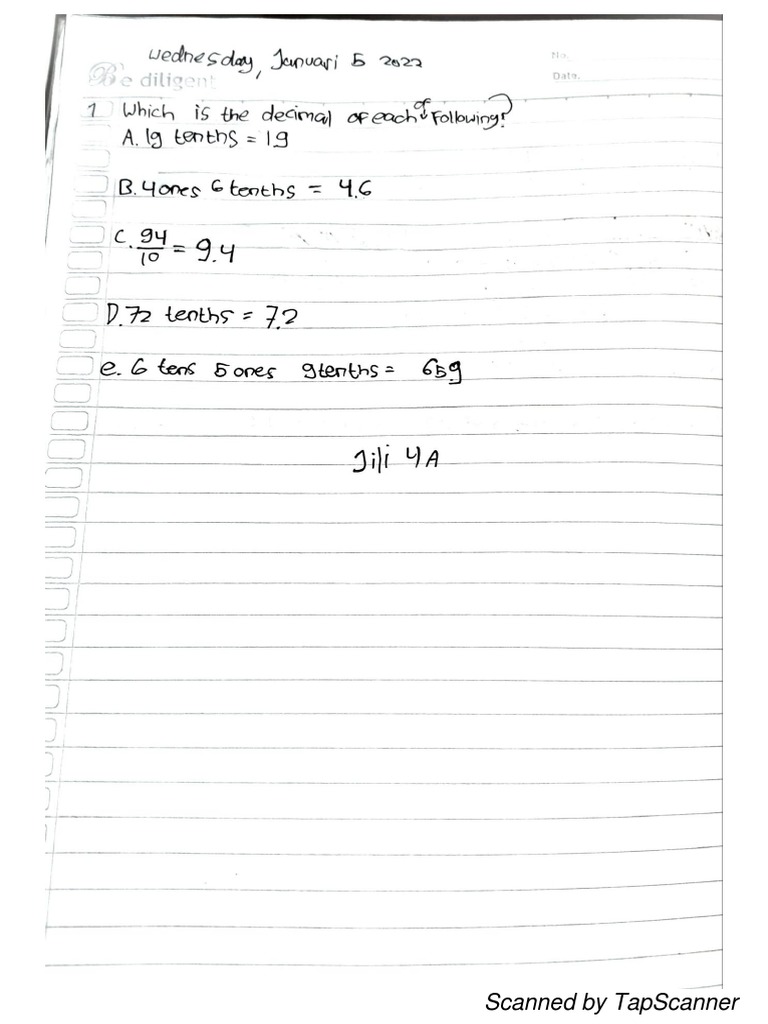 Wednesday, Januari 5 2022
No.
Be diligent
Date.
1 Which is the decimal of each of following?
A. 19 tenths = 19
B. 4 ones 6 tenths = 4.6
C. 94/10 = 9.4
D. 72 tenths = 7.2
e. 6 tens 5 ones 9 tenths = 659
Jili 4A
Scanned by TapScanner